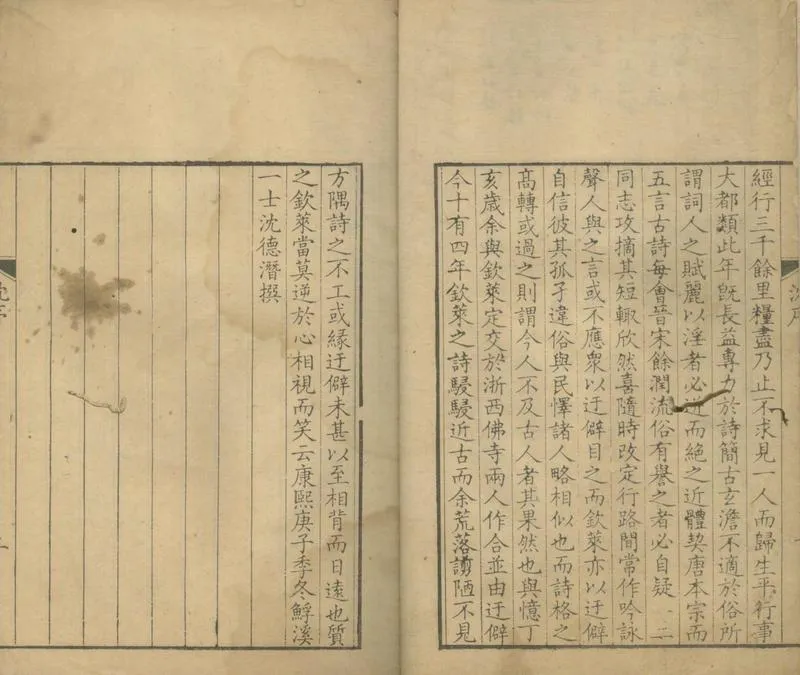 經行三千餘里糧盡乃止不求見一人而歸生平行事
大都類此年既長益專力於詩簡古玄澹不適於俗所
謂詞人之賦麗以淫者必逆而絕之近體契唐本宗而
五言古詩每會晉宋餘潤流俗有譽之者必自疑一二
同志攻摘其短輒欣然喜隨時改定行路間常作吟詠
聲人與之言或不應衆以迂僻目之而欽萊亦以迂僻
自信彼其孤孑違俗與民懌諸人略相似也而詩格之
高轉或過之則謂今人不及古人者其果然也與憶丁
亥歲余與欽萊定交於浙西佛寺兩人作合並由迂僻
今十有四年欽萊之詩駸駸近古而余荒落謭陋不見
方隅詩之不工或緣迂僻未甚以至相背而日遠也質
之欽萊當莫逆於心相視而笑云康熙庚子季冬鰥溪
一士沈德潛撰
沈序